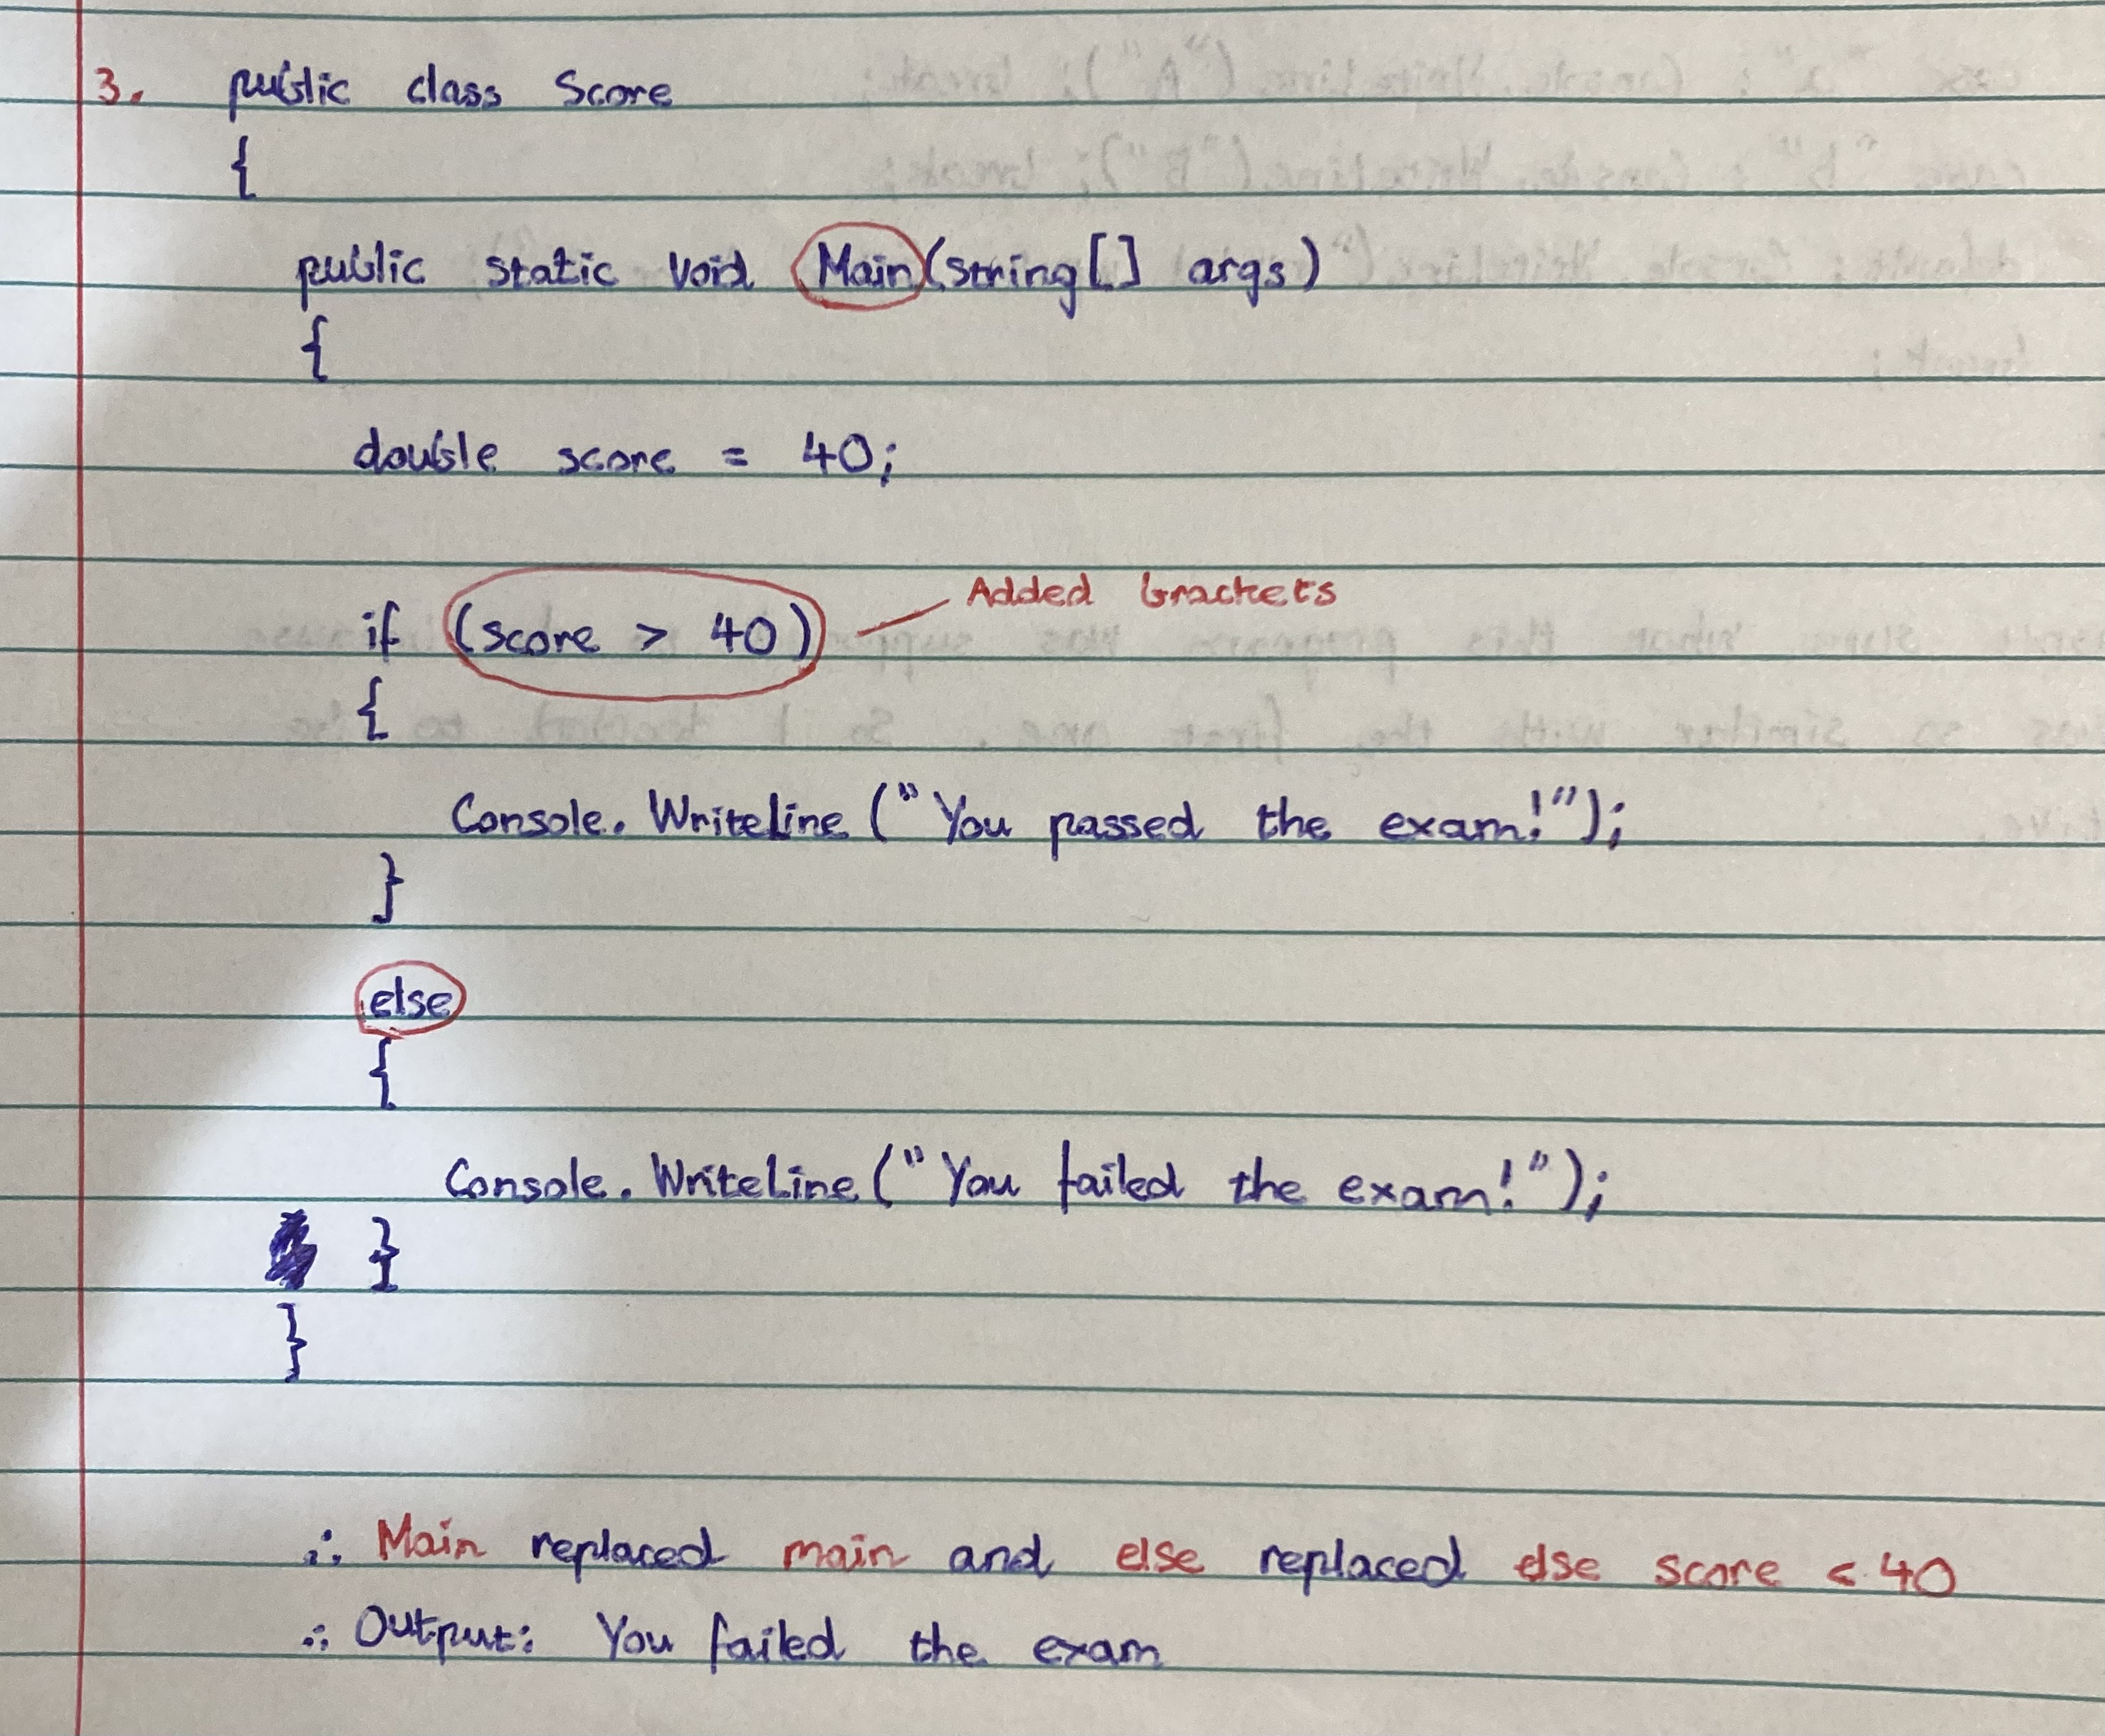 3. public class Score
{
public static void Main(string[] args)
{
double score = 40;
if (score > 40)
Added brackets
{
Console.WriteLine("You passed the exam!");
}
else
{
Console.WriteLine("You failed the exam!");
}
}
∴ Main replaced main and else replaced else score < 40
∴ Output: You failed the exam